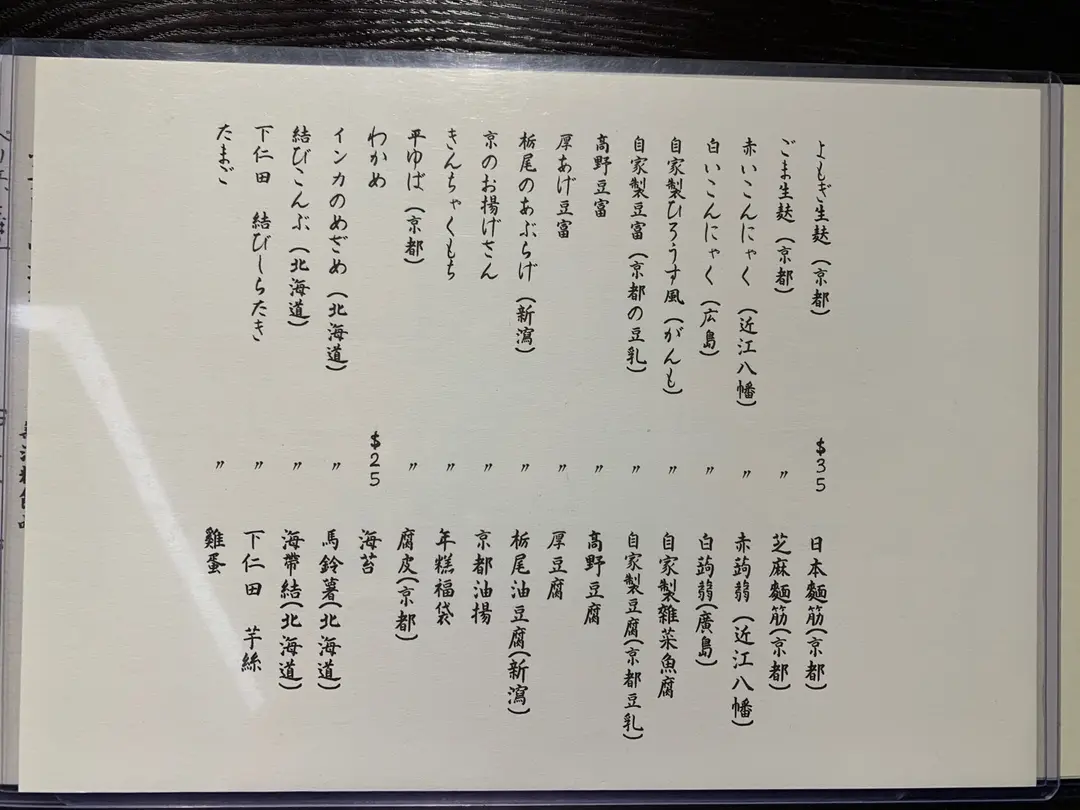 よもぎ生麩（京都） $35 日本麵筋（京都）
ごま生麩（京都） 〃 芝麻麵筋（京都）
赤いこんにゃく（近江八幡） 〃 赤蒟蒻（近江八幡）
白いこんにゃく（広島） 〃 白蒟蒻（廣島）
自家製ひろうす風（がんも） 〃 自家製雜菜魚腐
自家製豆富（京都の豆乳） 〃 自家製豆腐（京都豆乳）
高野豆富 〃 高野豆腐
厚あげ豆富 〃 厚豆腐
栃尾のあぶらげ（新瀉） 〃 栃尾油豆腐（新瀉）
京のお揚げさん 〃 京都油揚
きんちゃくもち 〃 年糕福袋
平ゆば（京都） 〃 腐皮（京都）
わかめ $25 海苔
インカのめざめ（北海道） 〃 馬鈴薯（北海道）
結びこんぶ（北海道） 〃 海帶結（北海道）
下仁田 結びしらたき 〃 下仁田 芋絲
たまご 〃 雞蛋